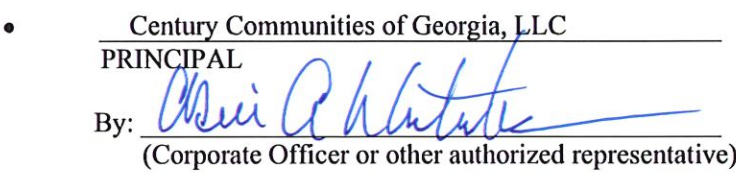 • Century Communities of Georgia, LLC
PRINCIPAL
By:
(Corporate Officer or other authorized representative)